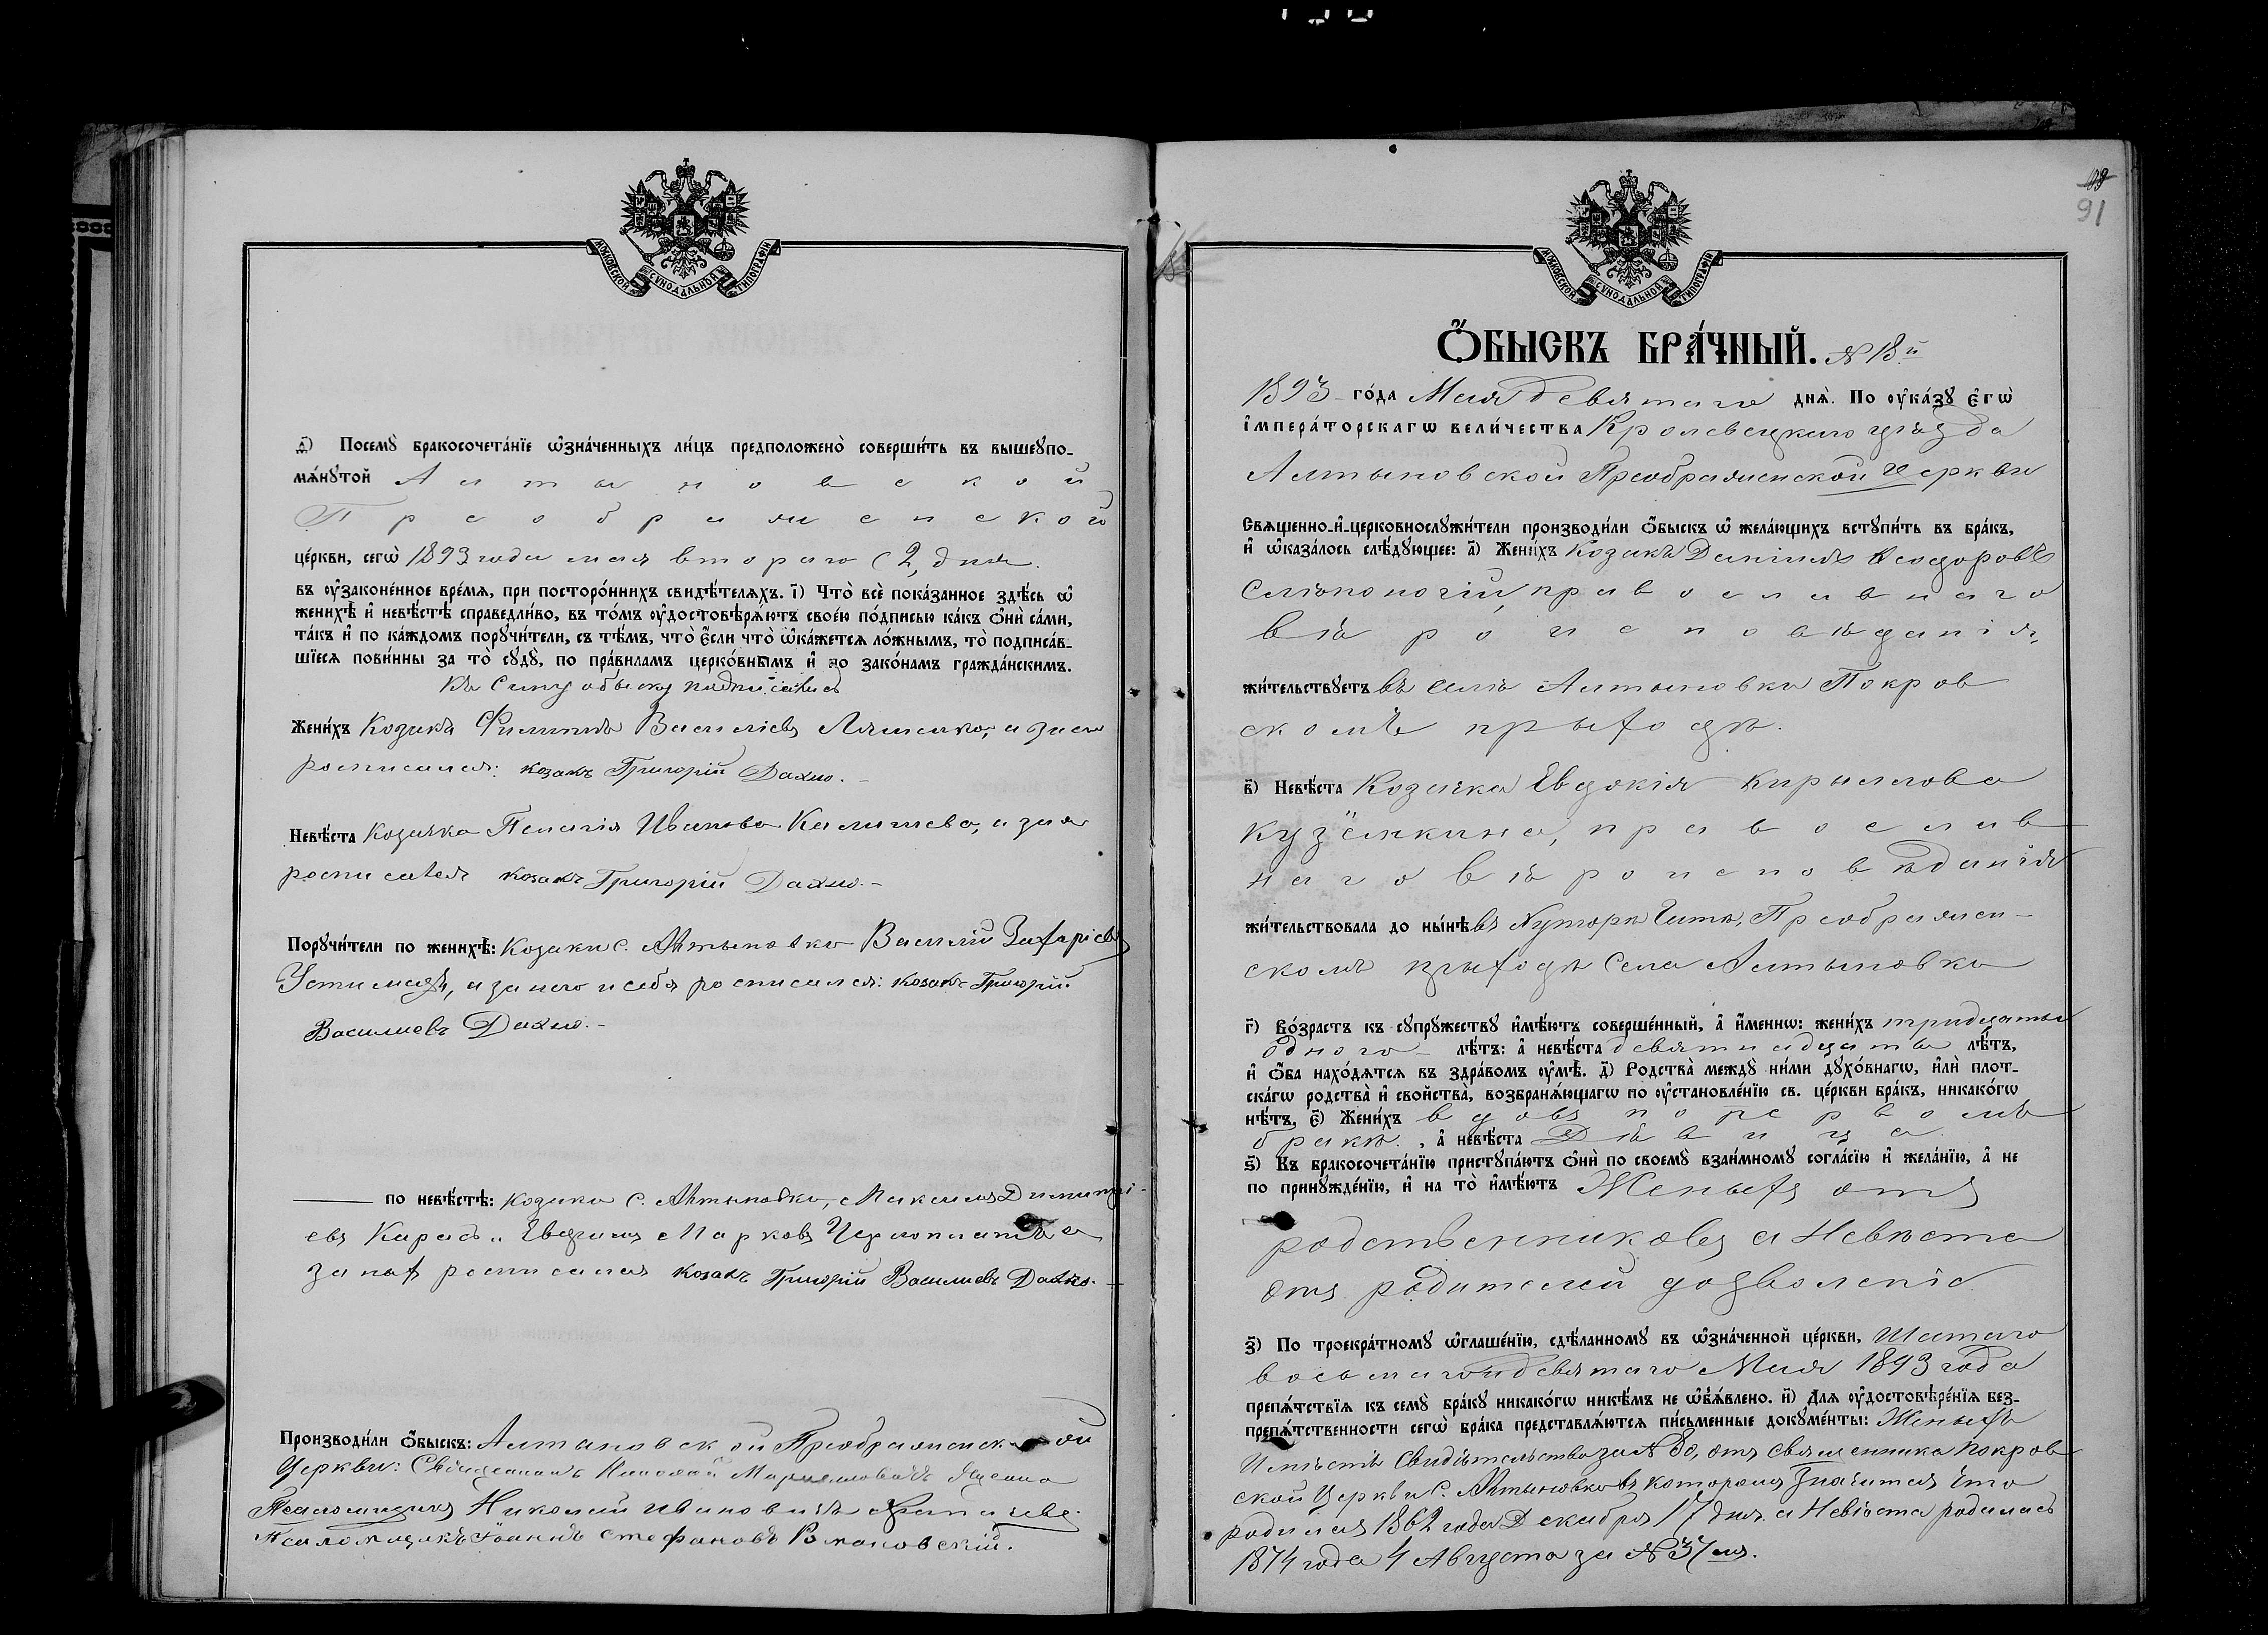 МОСКОВСКОЙ СУНОДАЛЬНОЙ ТИПОГРАФІИ
ѳ҃) Посемꙋ̀ бракосочета́нїе ѡ҆зна́ченныхъ ли́цъ предположено̀ соверши́ть въ вышеꙋпо-
мѧ́нꙋтой Алтыновской
Преображенской
це́ркви, сегѡ̀ 1893 года мая втораго (2, дня.
въ ᲂу҆зако́ненное вре́мѧ, при посторо́ннихъ свидѣ́телѧхъ. і҃) Что̀ всѐ пока́занное здѣ́сь ѡ҆
женихѣ̀ и҆ невѣ́стѣ справедли́во, въ то́мъ ᲂу҆достовѣрѧ́ютъ свое́ю по́дписью ка́къ ѻ҆нѝ са́ми,
та́къ и҆ по ка́ждомъ порꙋчи́тели, съ тѣ́мъ, что̀ є҆́сли что̀ ѡ҆ка́жетсѧ ло́жнымъ, то̀ подписа́в-
шїесѧ пови́нны за то̀ сꙋдꙋ̀, по пра́виламъ церко́внымъ и҆ по зако́намъ гражда́нскимъ.
Къ сему обыску подписались
Жени́хъ Козакъ Филиппъ Василіевъ Ляшенко, а за его
росписался: козакъ Григорій Дахно.-
Невѣ́ста Козачка Пелагія Иванова а за ея
росписался козакъ Григорій Дахно.-
Порꙋчи́тели по женихѣ̀: Козаки с. Алтыновки Василій Захаріевъ
а за него и себя росписался: козакъ Григорій
Василиевъ Дахно.-
по невѣ́стѣ: козаки с. Алтыновки, Максимъ Димитрі-
евъ Карась и Евфимъ Марковъ а
за нихъ росписался козакъ Григорій Василиевъ Дахно.-
Производи́ли ѻ҆́быскъ: Алтыновской Преображенской
Церкви: Священникъ Николай
Псаломщикъ Николай Ивановичъ
Псаломщикъ Іоаннъ Стефановъ
99
91
МОСКОВСКОЙ СУНОДАЛЬНОЙ ТИПОГРАФІИ
Ѻ҆́БЫСКЪ БРА́ЧНЫЙ. № 18й
1893 го́да Мая девятаго днѧ̀. По ᲂу҆ка́зꙋ є҆гѡ̀
і҆мпера́торскагѡ вели́чества Кролевецкаго уѣзда
Алтыновской Преображенской Церкви
Свѧще́нно-и҆-церковнослꙋжи́тели производи́ли ѻ҆́быскъ ѡ҆ жела́ющихъ встꙋпи́ть въ бра́къ,
и҆ ѡ҆каза́лось слѣ́дꙋющее: а҃) Жени́хъ Козакъ Даніилъ Ѳеодоровъ
православнаго
вѣроисповѣданія,
жи́тельствꙋетъ въ селѣ Алтыновки Покров
скомъ прыходѣ.
в҃) Невѣ́ста Козачка Евдокія Кирыллова
Кузёмкина, православ
наго вѣроисповѣданія
жи́тельствовала до ны́нѣ въ Хуторѣ Преображен-
скомъ прыходѣ села Алтыновки
г҃) Во́зрастъ къ сꙋпрꙋ́жествꙋ и҆мѣ́ютъ соверше́нный, а҆ и҆́менно: жени́хъ тридцать
одного лѣ́тъ: а҆ невѣ́ста девятнадцать лѣ́тъ,
и҆ ѻ҆́ба нахо́дѧтсѧ въ здра́вомъ ᲂу҆мѣ̀. д҃) Родства̀ междꙋ̀ ни́ми дꙋхо́внагѡ, и҆лѝ плот-
ска́гѡ родства̀ и҆ свойства̀, возбранѧ́ющагѡ по ᲂу҆становле́нїю св. це́ркви бра́къ, никако́гѡ
нѣ́тъ, є҃) Жени́хъ вдовъ по первомъ
бракѣ., а҆ невѣ́ста Дѣвица.
ѕ҃) Къ бракосочета́нїю пристꙋпа́ютъ ѻ҆нѝ по своемꙋ̀ взаи́мномꙋ согла́сїю и҆ жела́нїю, а҆ не
по принꙋжде́нїю, и҆ на то̀ и҆мѣ́ютъ Женыхъ отъ
родственниковъ а Невѣста
отъ родителей дозволеніе
з҃) По троекра́тномꙋ ѡ҆глаше́нїю, сдѣ́ланномꙋ въ ѡ҆зна́ченной це́ркви,
восьмаго и девятаго Мая 1893 года
препѧ́тствїѧ къ семꙋ̀ бра́кꙋ никако́гѡ никѣ́мъ не ѡ҆б̾ѧ́влено. и҃) Длѧ ᲂу҆достовѣре́нїѧ без-
препѧ́тственности сегѡ̀ бра́ка представлѧ́ютсѧ пи́сьменные докꙋме́нты: Женыхъ
свидѣтельство за № 80, отъ священника Покров
ской Церкви с. Алтыновки въ которомъ значится что
родился 1862 года Декабря 17 дня. а Невѣста родилась
1874 года 4 Августа за № 37мъ.